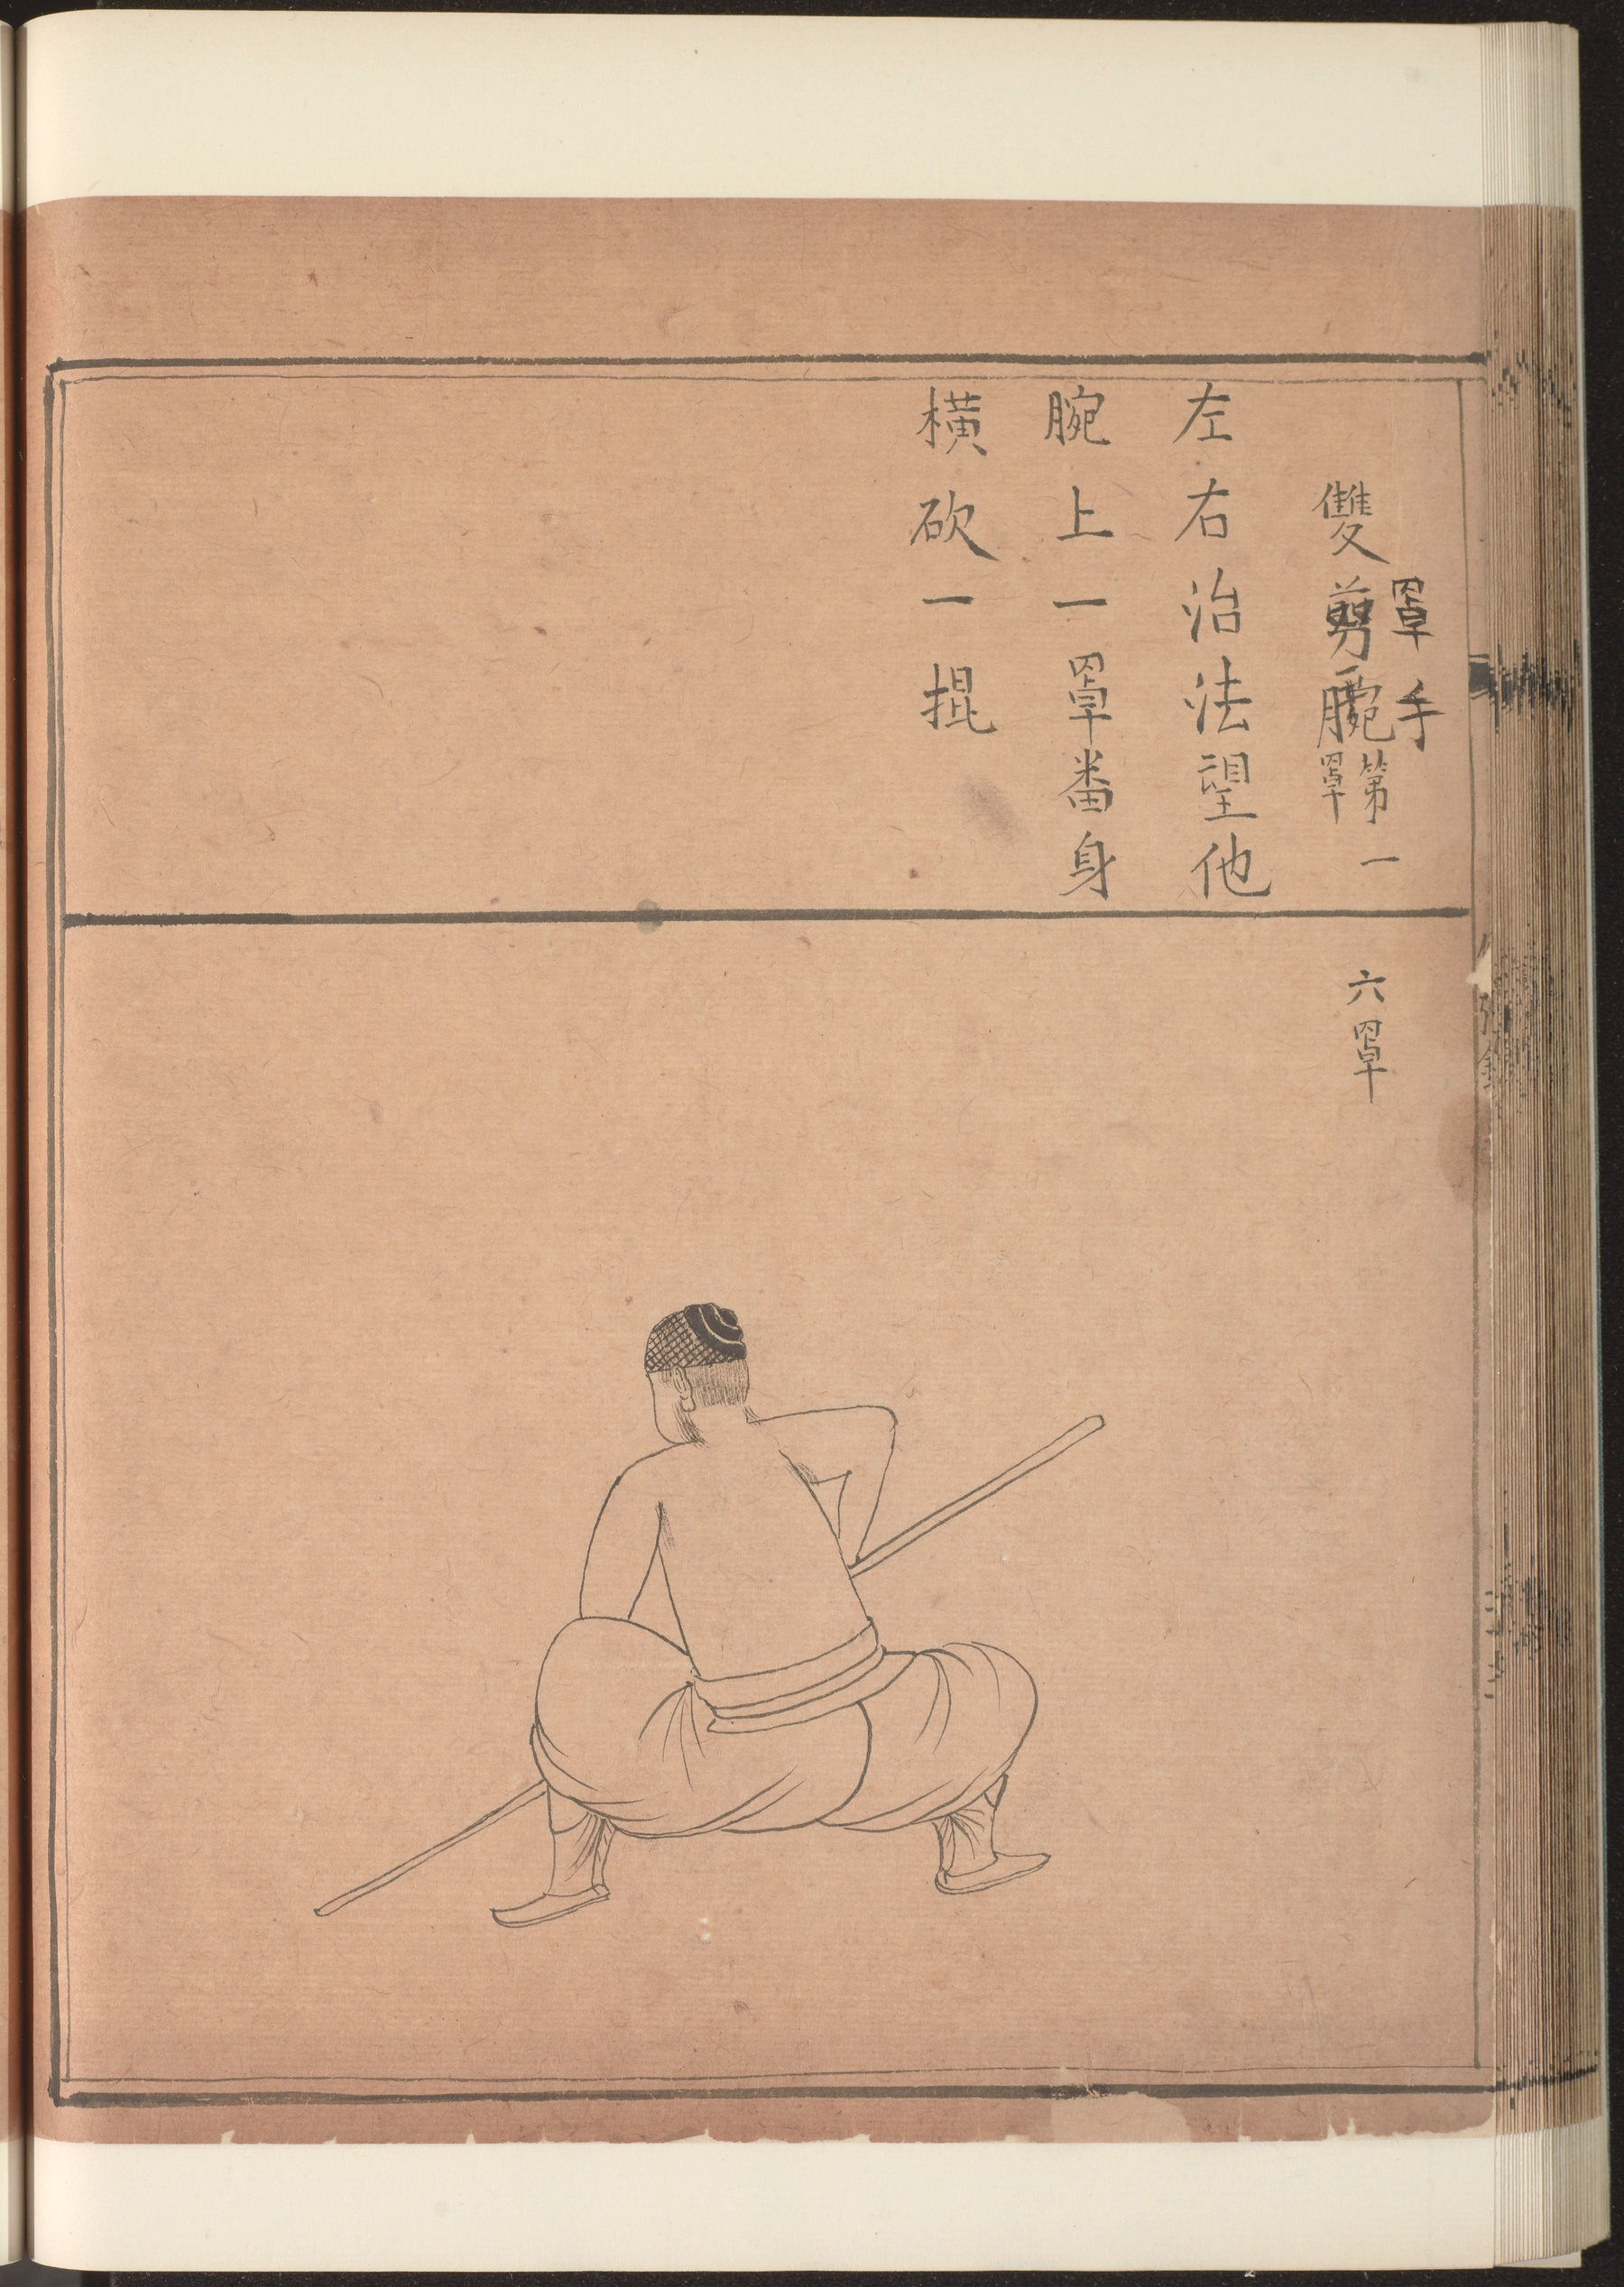 罩手
雙剪腕第一罩
左右治法望他
腕上一罩畨身
橫砍一掍
六罩